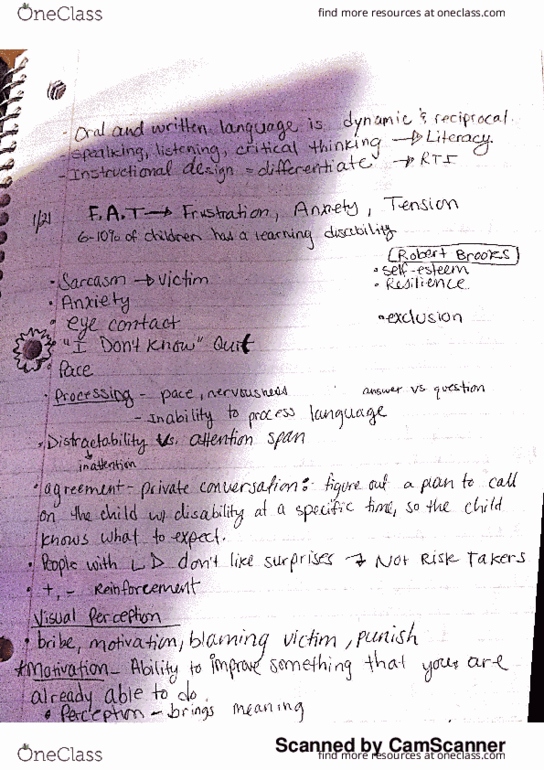 OneClass
find more resources at oneclass.com
- Oral and written language is dynamic & reciprocal.
- Speaking, listening, critical thinking → Literacy.
- Instructional design = differentiate → RTI
1/21 F.A.T → Frustration, Anxiety, Tension
6-10% of children has a learning disability
Robert Brooks
• self-esteem
• Sarcasm → victim
• Resilience
• Anxiety
• eye contact
• exclusion
"I Don't know" Quit
• Pace
• Processing - pace, nervousness answer vs question
- Inability to process language
• Distractability vs. attention span
inattention
• agreement - private conversation: figure out a plan to call
on the child w/ disability at a specific time, so the child
knows what to expect.
• People with LD don't like surprises → Not Risk Takers
• +, - Reinforcement
Visual Perception
• bribe, motivation, blaming victim, punish
*Motivation - Ability to improve something that your are
already able to do.
• Perception - brings meaning
Scanned by CamScanner
OneClass
find more resources at oneclass.com